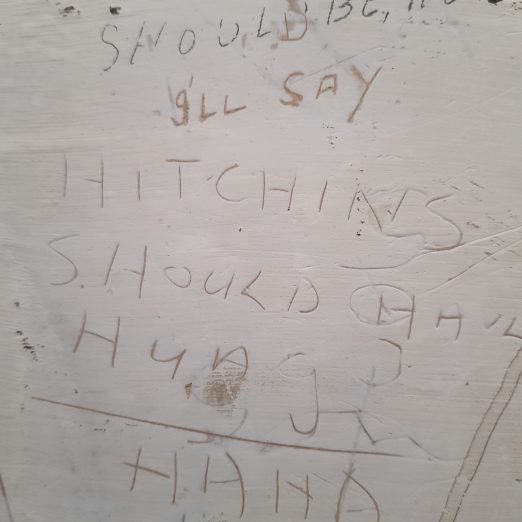 SHOULD BE,
I'LL SAY
HITCHINS
SHOULD HAVE
HUNG
HAHA